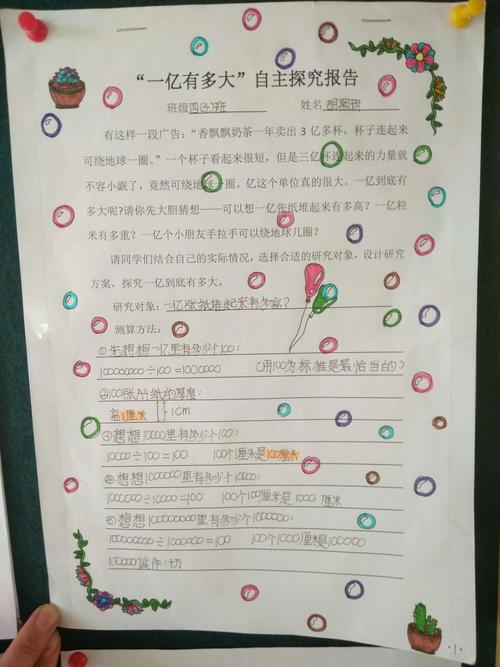 “一亿有多大”自主探究报告
班级四(4)班 姓名
有这样一段广告:“香飘飘奶茶一年卖出 3 亿多杯,杯子连起来
可绕地球一圈。”一个杯子看起来很短,但是三亿杯连起来的力量就
不容小觑了,竟然可绕地球一圈。亿这个单位真的很大。一亿到底有
多大呢?请你先大胆猜想——可以想一亿张纸堆起来有多高?一亿粒
米有多重?一亿个小朋友手拉手可以绕地球几圈?
请同学们结合自己的实际情况,选择合适的研究对象,设计研究
方案,探究一亿到底有多大。
研究对象:一亿张纸堆起来有多高?
测算方法:
①先想想一亿里有多少个100:
100000000÷100=1000000 (用100为标准是最恰当的)
②100张A4纸的厚度:
高1厘米 1cm
③想想10000里有多少个100:
10000÷100=100 100个1厘米是100厘米
④想想1000000里有多少个10000:
1000000÷10000=100 100个100厘米是 厘米
⑤想想100000000里有多少个1000000:
100000000÷1000000=100
·1·